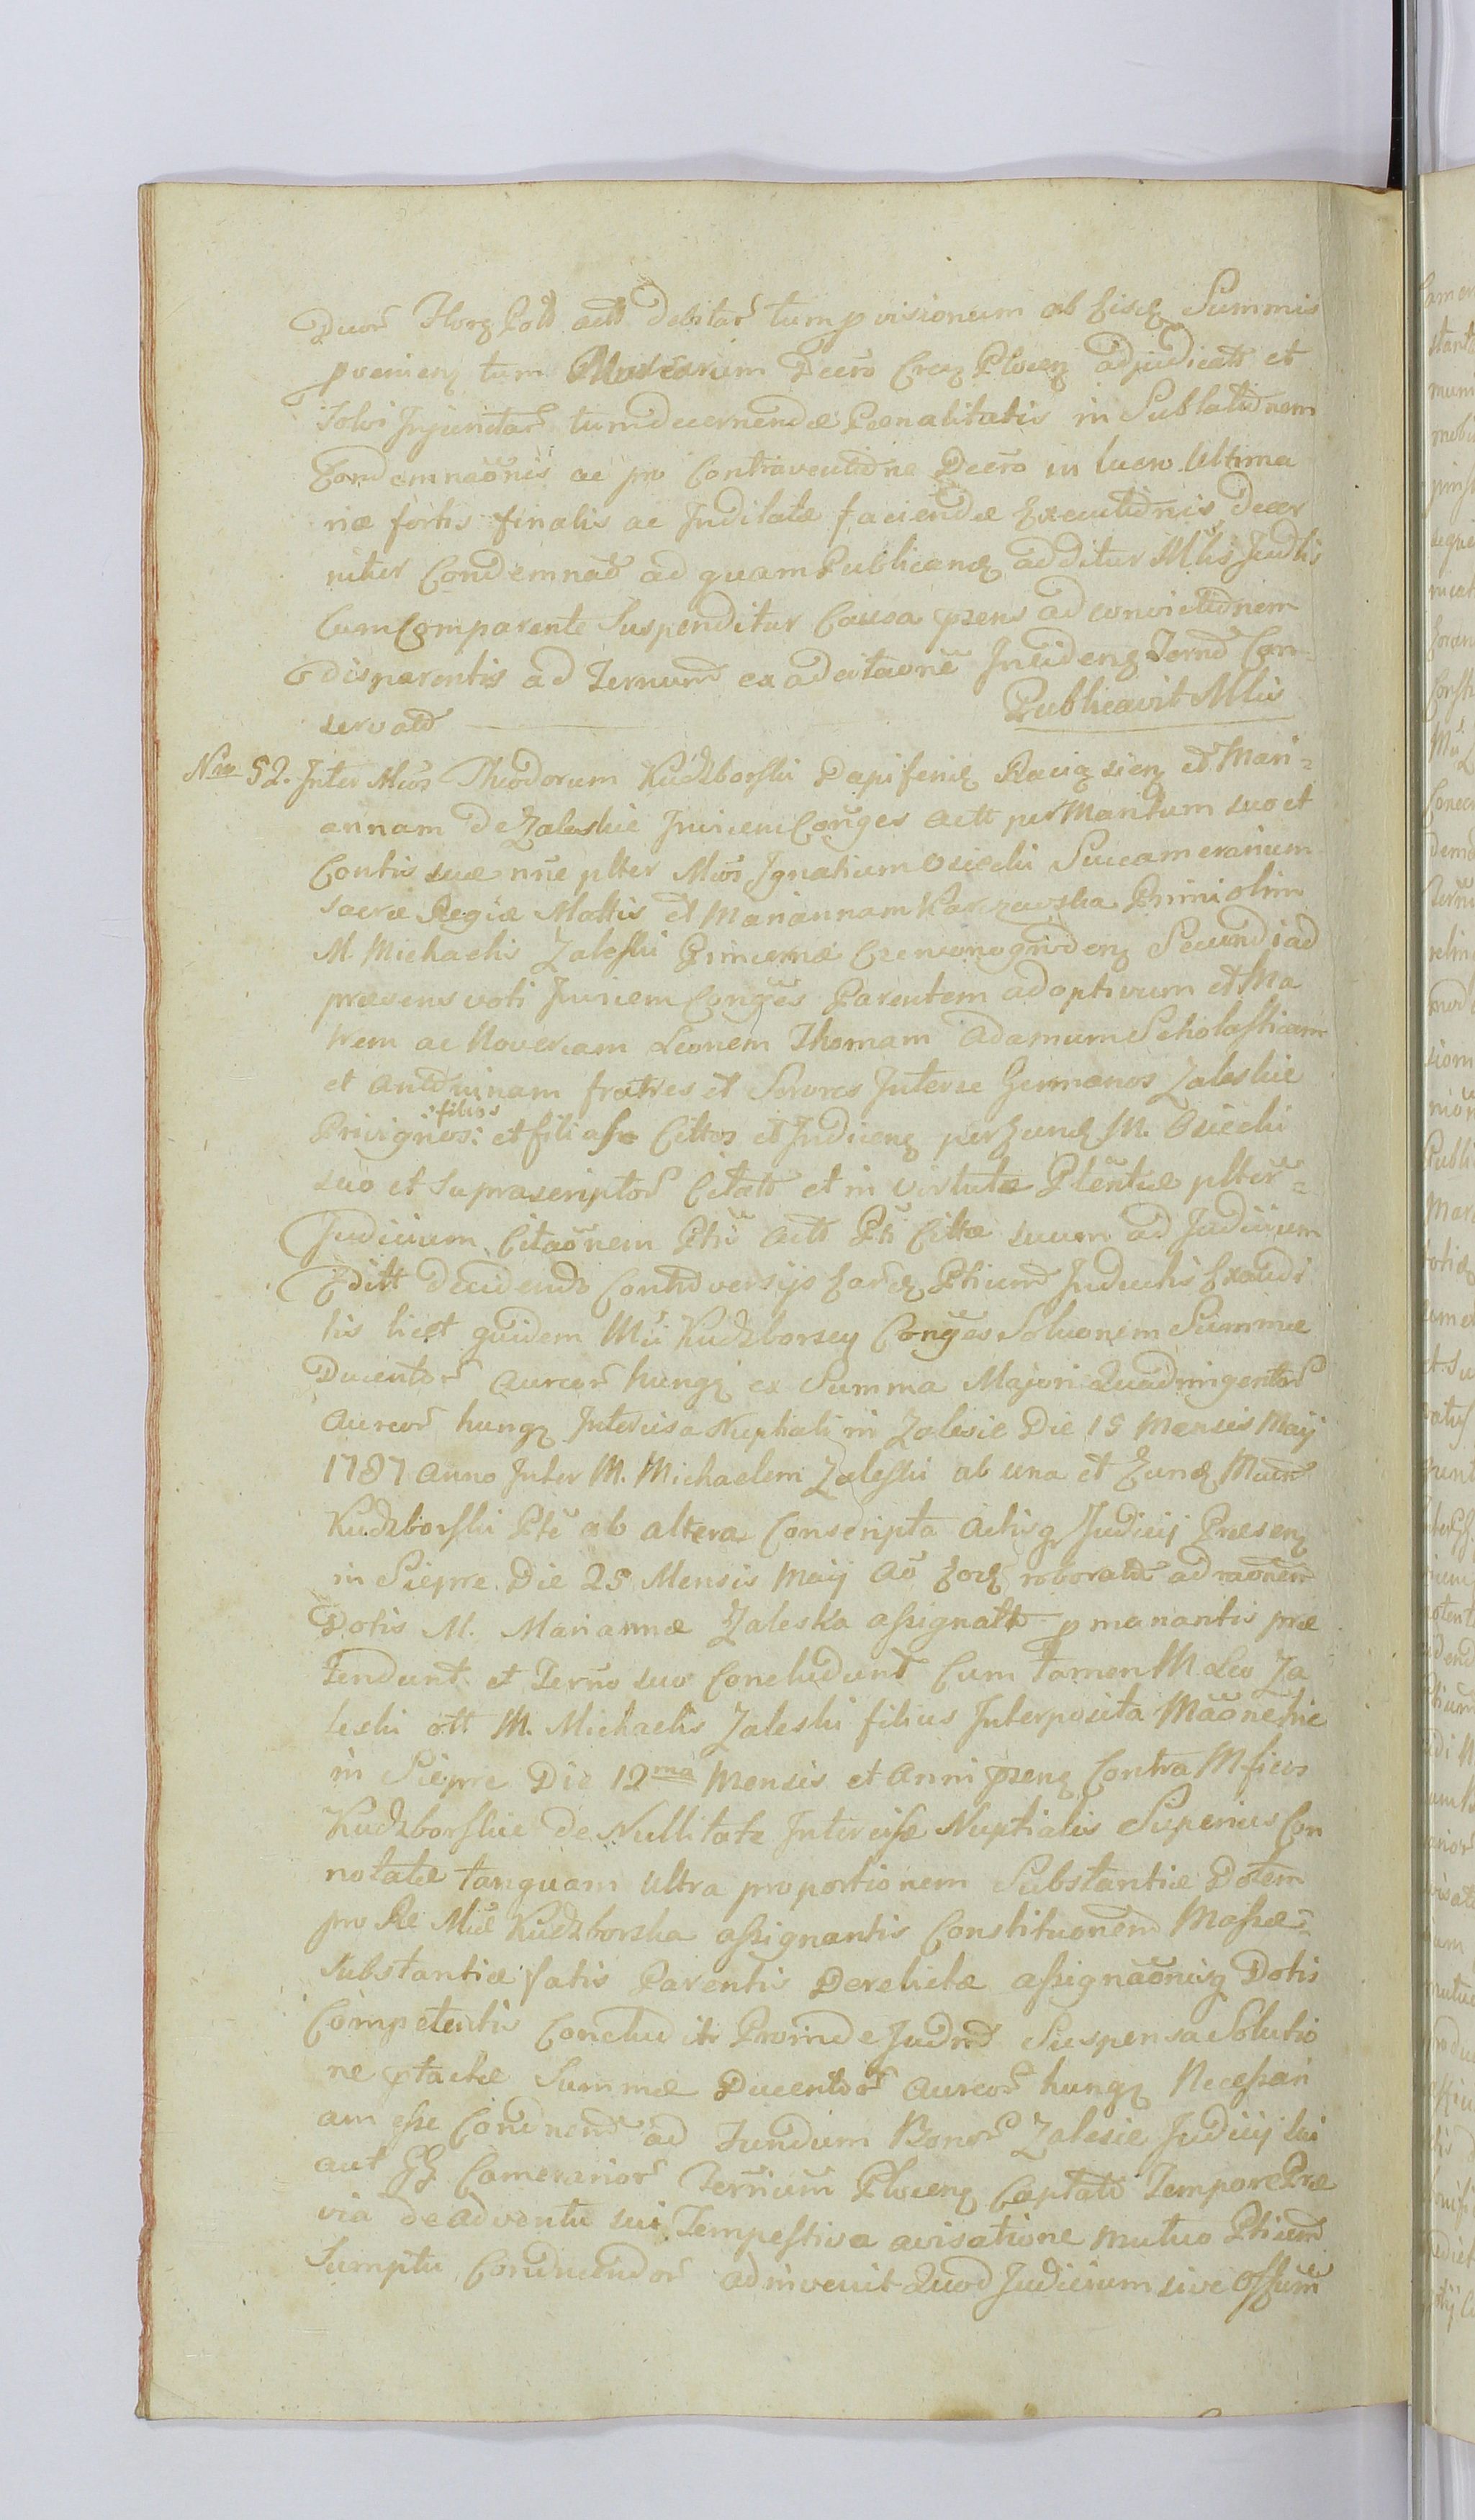 Duor Florz Poll actt debitar tum pvisionum ab Eisdz Summis
pvenienz tum Decro Crcz Plocenz adjudicatt et
Solvi Injunctar tum decernendæ Pœnalitatis in Sublationem
Condemnaonis ac pro Contraventione Decro in lucro Ultima
riæ fortis finalis ac Inditatæ faciendæ Executionis decer
nitur Condemnat ad quam Publicandz additur Mlis Judlis
Cum Comparente Suspenditur Causa przens ad convictionem
disparentis ad Ternum ex adcitaone Incidenz Fornd Con-
servatd
Publicavit Mlis
Nro 52. Inter Mcos Theodorum Kudzborski Dapiferidz Raciązienz et Mari=
annam de Zaleskie Invicem Conges actt per Mantum suo et
Contis suæ nne plter Mcos Ignatium Osiecki Succamerarium
sacræ Regiæ Mattis et Mariannam Karzewska Primi olim
M. Michaelis Zaleski Pincernæ Czerwonogrodenz Secundi ad
præsens voti Invicem Conges Parentem adoptivum et Ma
trem ac Novercam Leonem Thomam Adamum Scholasticam
et Antoninam fratres et Sorores Inter se Germanos Zaleskie
Privignos: :filios et filias Cittos et Judicenz per Eundz M. Osiecki
suo et Suprascriptor Citatt et in virtute Plentiæ plter=
Judicium Citaonem Ptii Actt Pti Cittæ suum ad Judicium
Editt decidendo Controversijs Eardz Ptium Inductis Exaudi
tis licet quidem Mci Kudzborscy Conges Soluonem Summæ
Ducentor Aureor hungz ex Summa Majori Quadringentor
Aureor hungz Intercisa Nuptiali in Zalesie Die 15 Mensis Maij
1787 Anno Inter M. Michaelem Zaleski ab una et Eundz Mcum
Kudzborski Pte ab altera Conscripta Actisq Judicij Præsenz
in Sieprc Die 25 Mensis Maij Ao Eodz roborata ad raonem
Dotis M. Mariannæ Zaleska assignatt pmanantis præ
tendunt et Terno suo Concludunt Cum tamen M. Leo Za
leski ott M. Michaelis Zaleski filius Interposita Maone hic
in Sieprc Die 12ma Mensis et Anni przenz Contra Mficos
Kudzborskie de Nullitate Intercisæ Nuptialis Superius Con
notatæ tanquam Ultra proportionem Substantiæ Dotem
pro Re Mcæ Kudzborska assignantis Constituonem Massæ=
Substantiæ fatis Parentis Derelictæ assignaonisq Dotis
Competentis Concludit Proinde Judm Suspensa Solutio
ne ptactæ Summæ Ducentor Aureor hungz Necessari
am esse Condnend ad Fundum Bonor Zalesie Judicij sui
aut GG Camerarior Terrium Plocenz Captato Tempore Præ
via de adventu sui Tempestiva avisatione mutuo Ptium
Sumptu Conducendor adinvenit Quod Judicium sive Offium